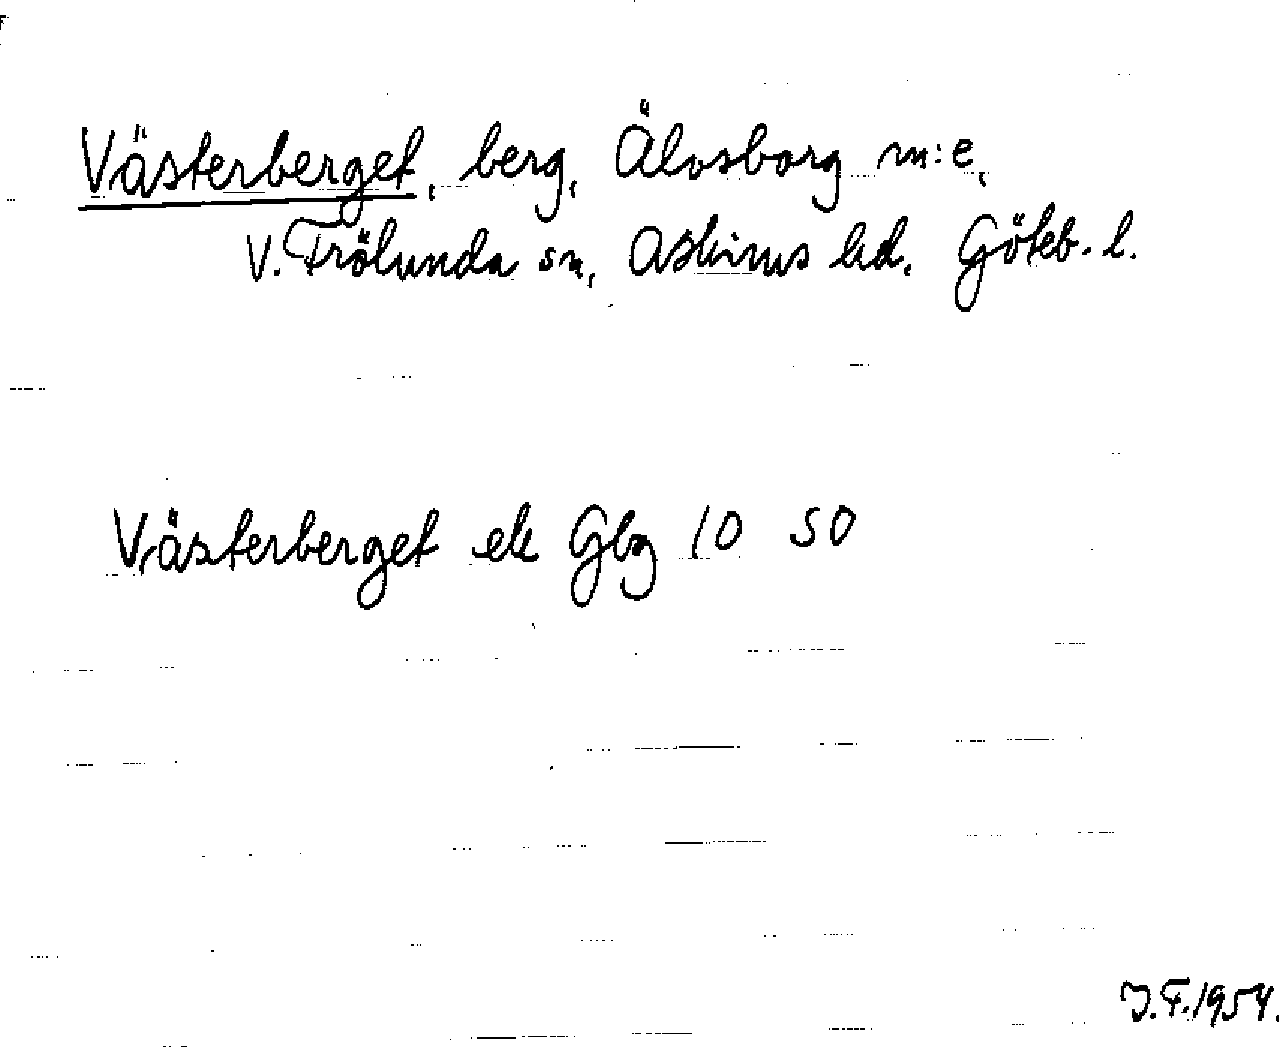 Västerberget, berg, Älvsborg m:e,
V. Frölunda sn, Askims hd. Göteb. l.
Västerberget ek Gbg 10 SO
J.F. 1954.